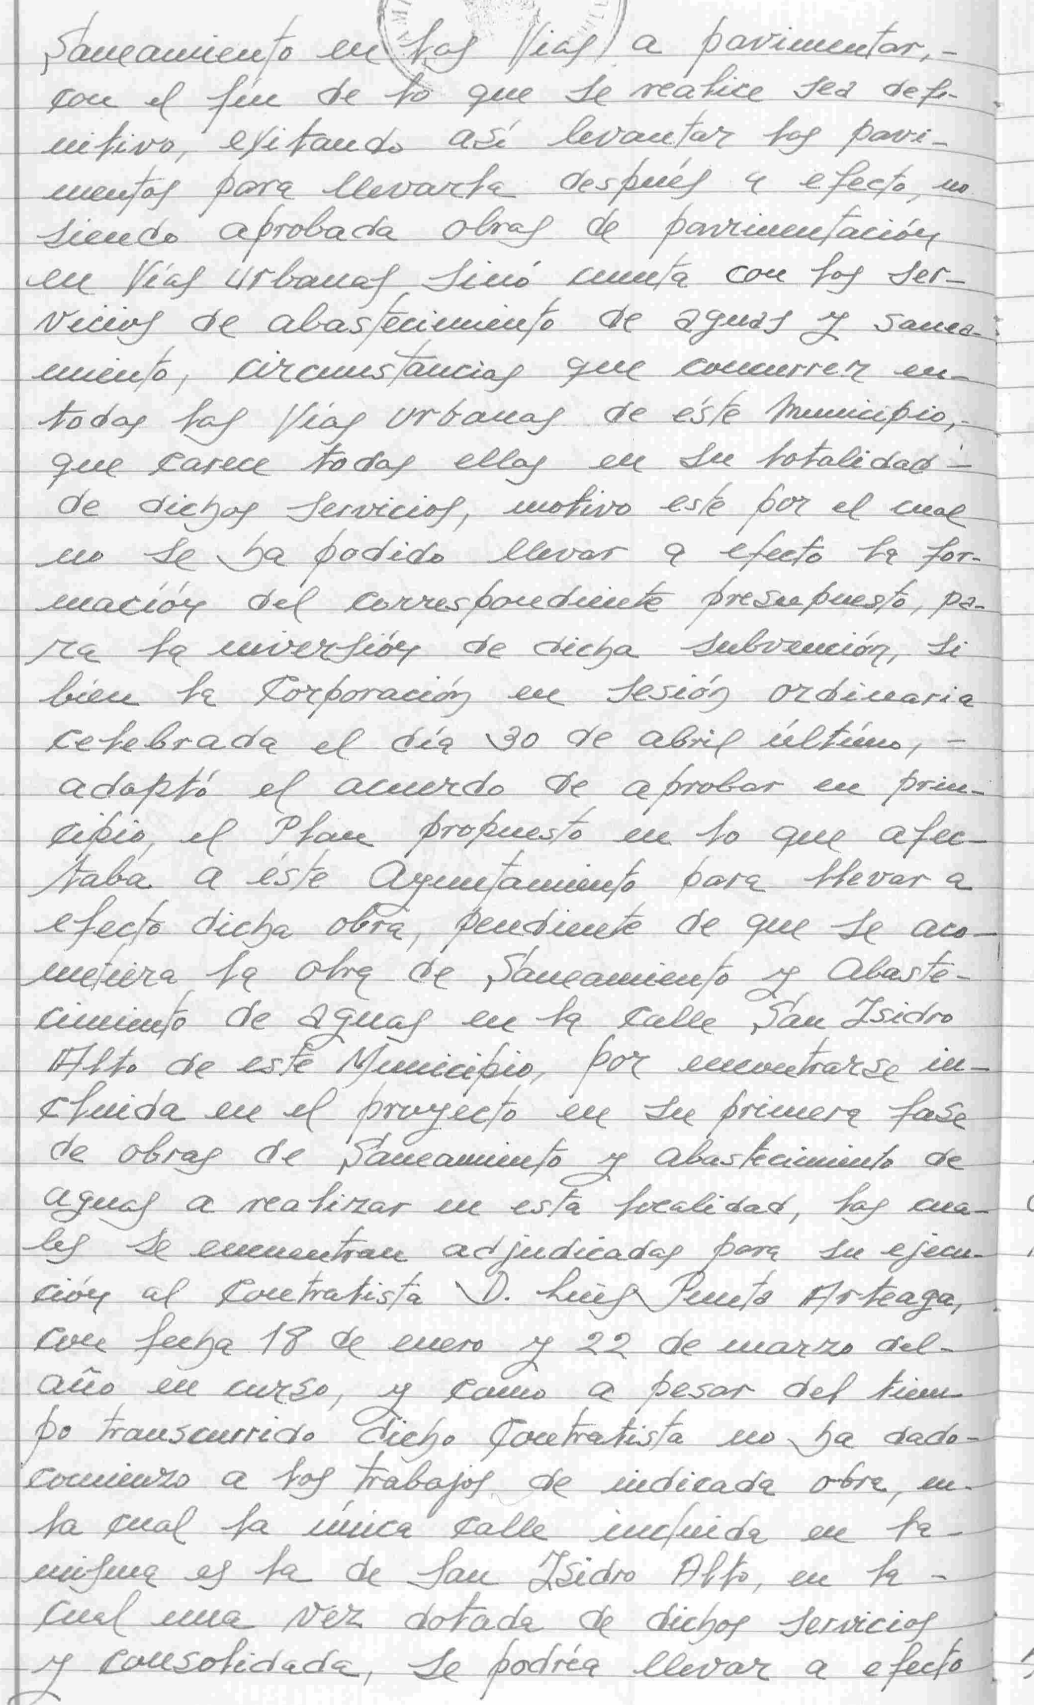 Saneamiento en las Vias a pavimentar,-
con el fin de lo que se realice sea defi-
nitivo, evitando así levantar los pavi-
mentos para llevarla después a efecto, no
siendo aprobada obras de pavimentación
en Vías Urbanas sinó cuenta con los ser-
vicios de abastecimiento de aguas y sanea-
miento, circunstancias que concurren en-
todas las Vías Urbanas de éste Municipio,-
que carece todas ellas en su totalidad-
de dichos servicios, motivo este por el cual
no se ha podido llevar a efecto la for-
mación del correspondiente presupuesto, pa-
ra la inversión de dicha subvención, si
bien la Corporación en sesión ordinaria
celebrada el día 30 de abril último, -
adoptó el acuerdo de aprobar en prin-
cipio, el Plan propuesto en lo que afec-
taba a éste Ayuntamiento para llevar a
efecto dicha obra, pendiente de que se aco-
metiera la obra de Saneamiento y Abaste-
cimiento de aguas en la calle San Isidro
Alto de este Municipio, por encontrarse in-
cluida en el proyecto en su primera fase
de obras de Saneamiento y abastecimiento de
aguas a realizar en esta localidad, las cua-
les se encuentran adjudicadas para su ejecu-
ción al Contratista D. Luis Arteaga,
con fecha 18 de enero y 22 de marzo del-
año en curso, y como a pesar del tiem-
po transcurrido dicho Contratista no ha dado-
comienzo a los trabajos de indicada obra, en-
la cual la única calle incluida en la-
misma es la de San Isidro Alto, en la -
cual una vez dotada de dichos servicios
y consolidada, se podría llevar a efecto